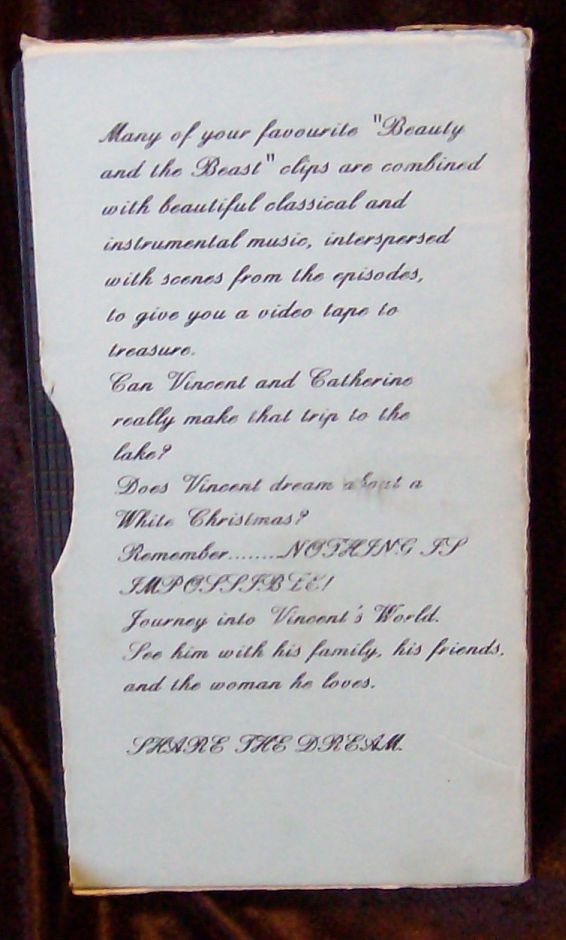 Many of your favourite "Beauty
and the Beast" clips are combined
with beautiful classical and
instrumental music, interspersed
with scenes from the episodes,
to give you a video tape to
treasure.
Can Vincent and Catherine
really make that trip to the
lake?
Does Vincent dream about a
White Christmas?
Remember........NOTHING IS
IMPOSSIBLE!
Journey into Vincent's World.
See him with his family, his friends,
and the woman he loves.
SHARE THE DREAM.